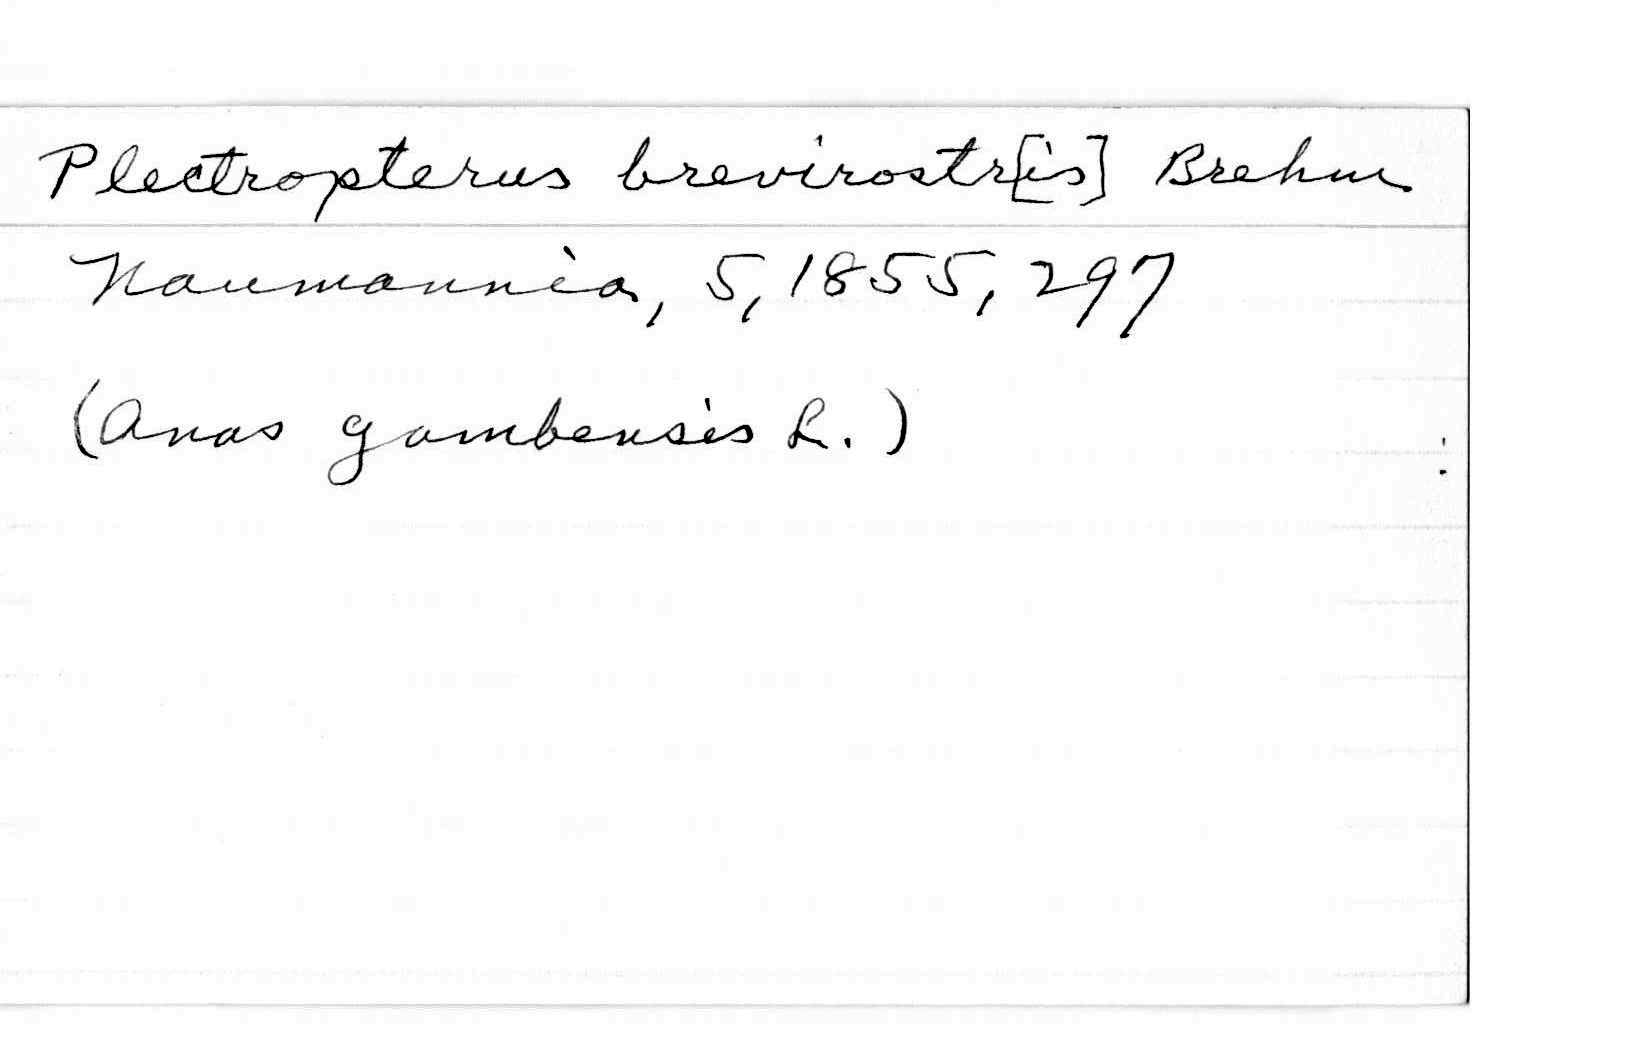 Plectropterus brevirostr[is] Brehm
Naumannia, 5, 1855, 297
(Anas gambensis L.)